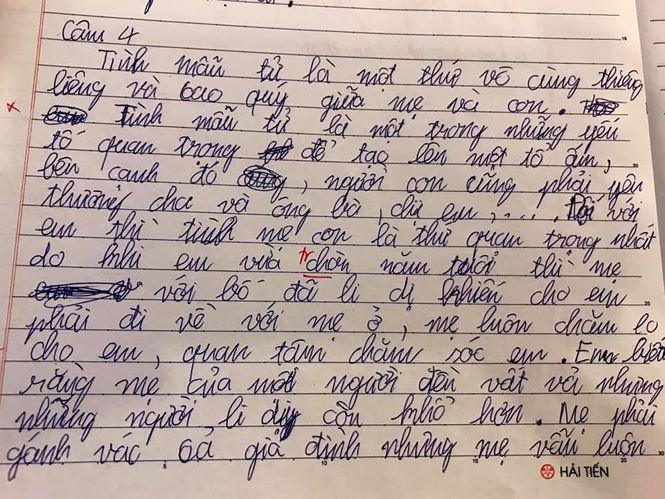 Câu 4
Tình mẫu tử là một thứ vô cùng thiêng
liêng và cao quý, giữa mẹ và con.
Tình mẫu tử là một trong những yếu
tố quan trong để tạo lên một tổ ấm,
bên cạnh đó, người con cũng phải yêu
thương cha và ông bà, chị em, .... Đối với
em thì tình mẹ con là thứ quan trọng nhất
do khi em vừa tr chòn năm tuổi thì mẹ
với bố đã li dị khiến cho em
phải đi về với mẹ ở, mẹ luôn chăm lo
cho em, quan tâm chăm sóc em. Em biết
rằng mẹ của một người đều vất vả nhưng
những người li dị còn khổ hơn. Mẹ phải
gánh vác cả gia đình nhưng mẹ vẫn luôn
HẢI TIẾN